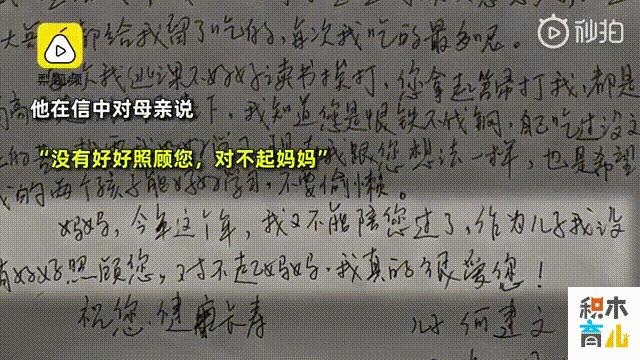 秒拍
梨视频
大英 都给我留了吃的,每次我吃的最多呢。
次我逃课不好好读书摸打,您拿起笤帚打我,都是
他在信中对母亲说
下,我知道您是恨铁不成钢,自己吃过没文
“没有好好照顾您,对不起妈妈”
我跟您想法一样,也是希望
我的两个孩子能好好学习,不要偷懒。
妈妈,今年这个年,我又不能陪您过了,作为儿子我没
有好好照顾您,对不起妈妈,我真的很爱您!
祝您健康长寿
儿子 何建文
积木
育儿